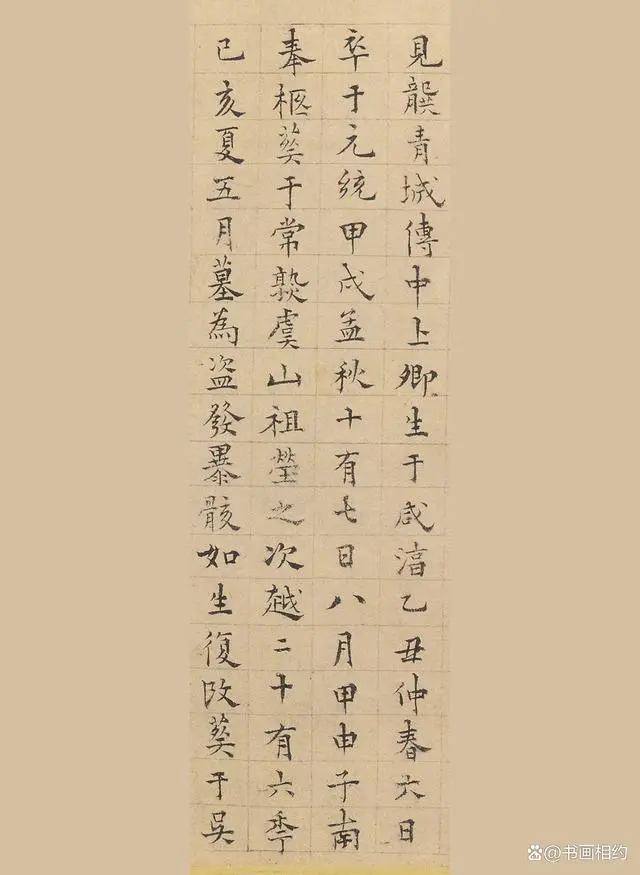 見龔青城傳中上卿生于咸淳乙丑仲春六日
卒于元統甲戌孟秋十有七日八月甲申子南
奉柩葬于常熟虞山祖塋之次越二十有六季
已亥夏五月墓為盜發暴骸如生復改葬于吳
@书画相约